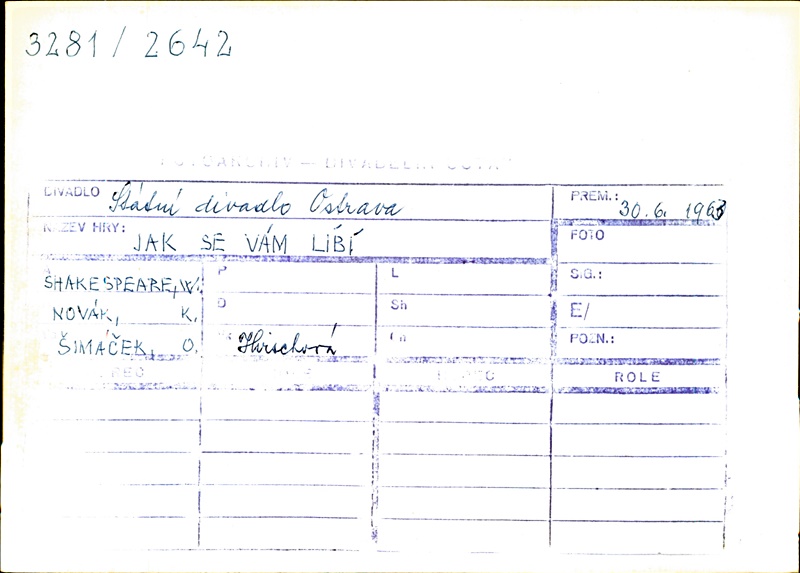 3281 / 2642
FOTOARCHIV — DIVADELNÍ
DIVADLO Státní divadlo Ostrava PREM.: 30.6. 1963
NÁZEV HRY: JAK SE VÁM LÍBÍ FOTO
SHAKESPEARE, W. P L S.G.:
NOVÁK, K. D Sh E/
ŠIMÁČEK, O. POZN.:
ROLE